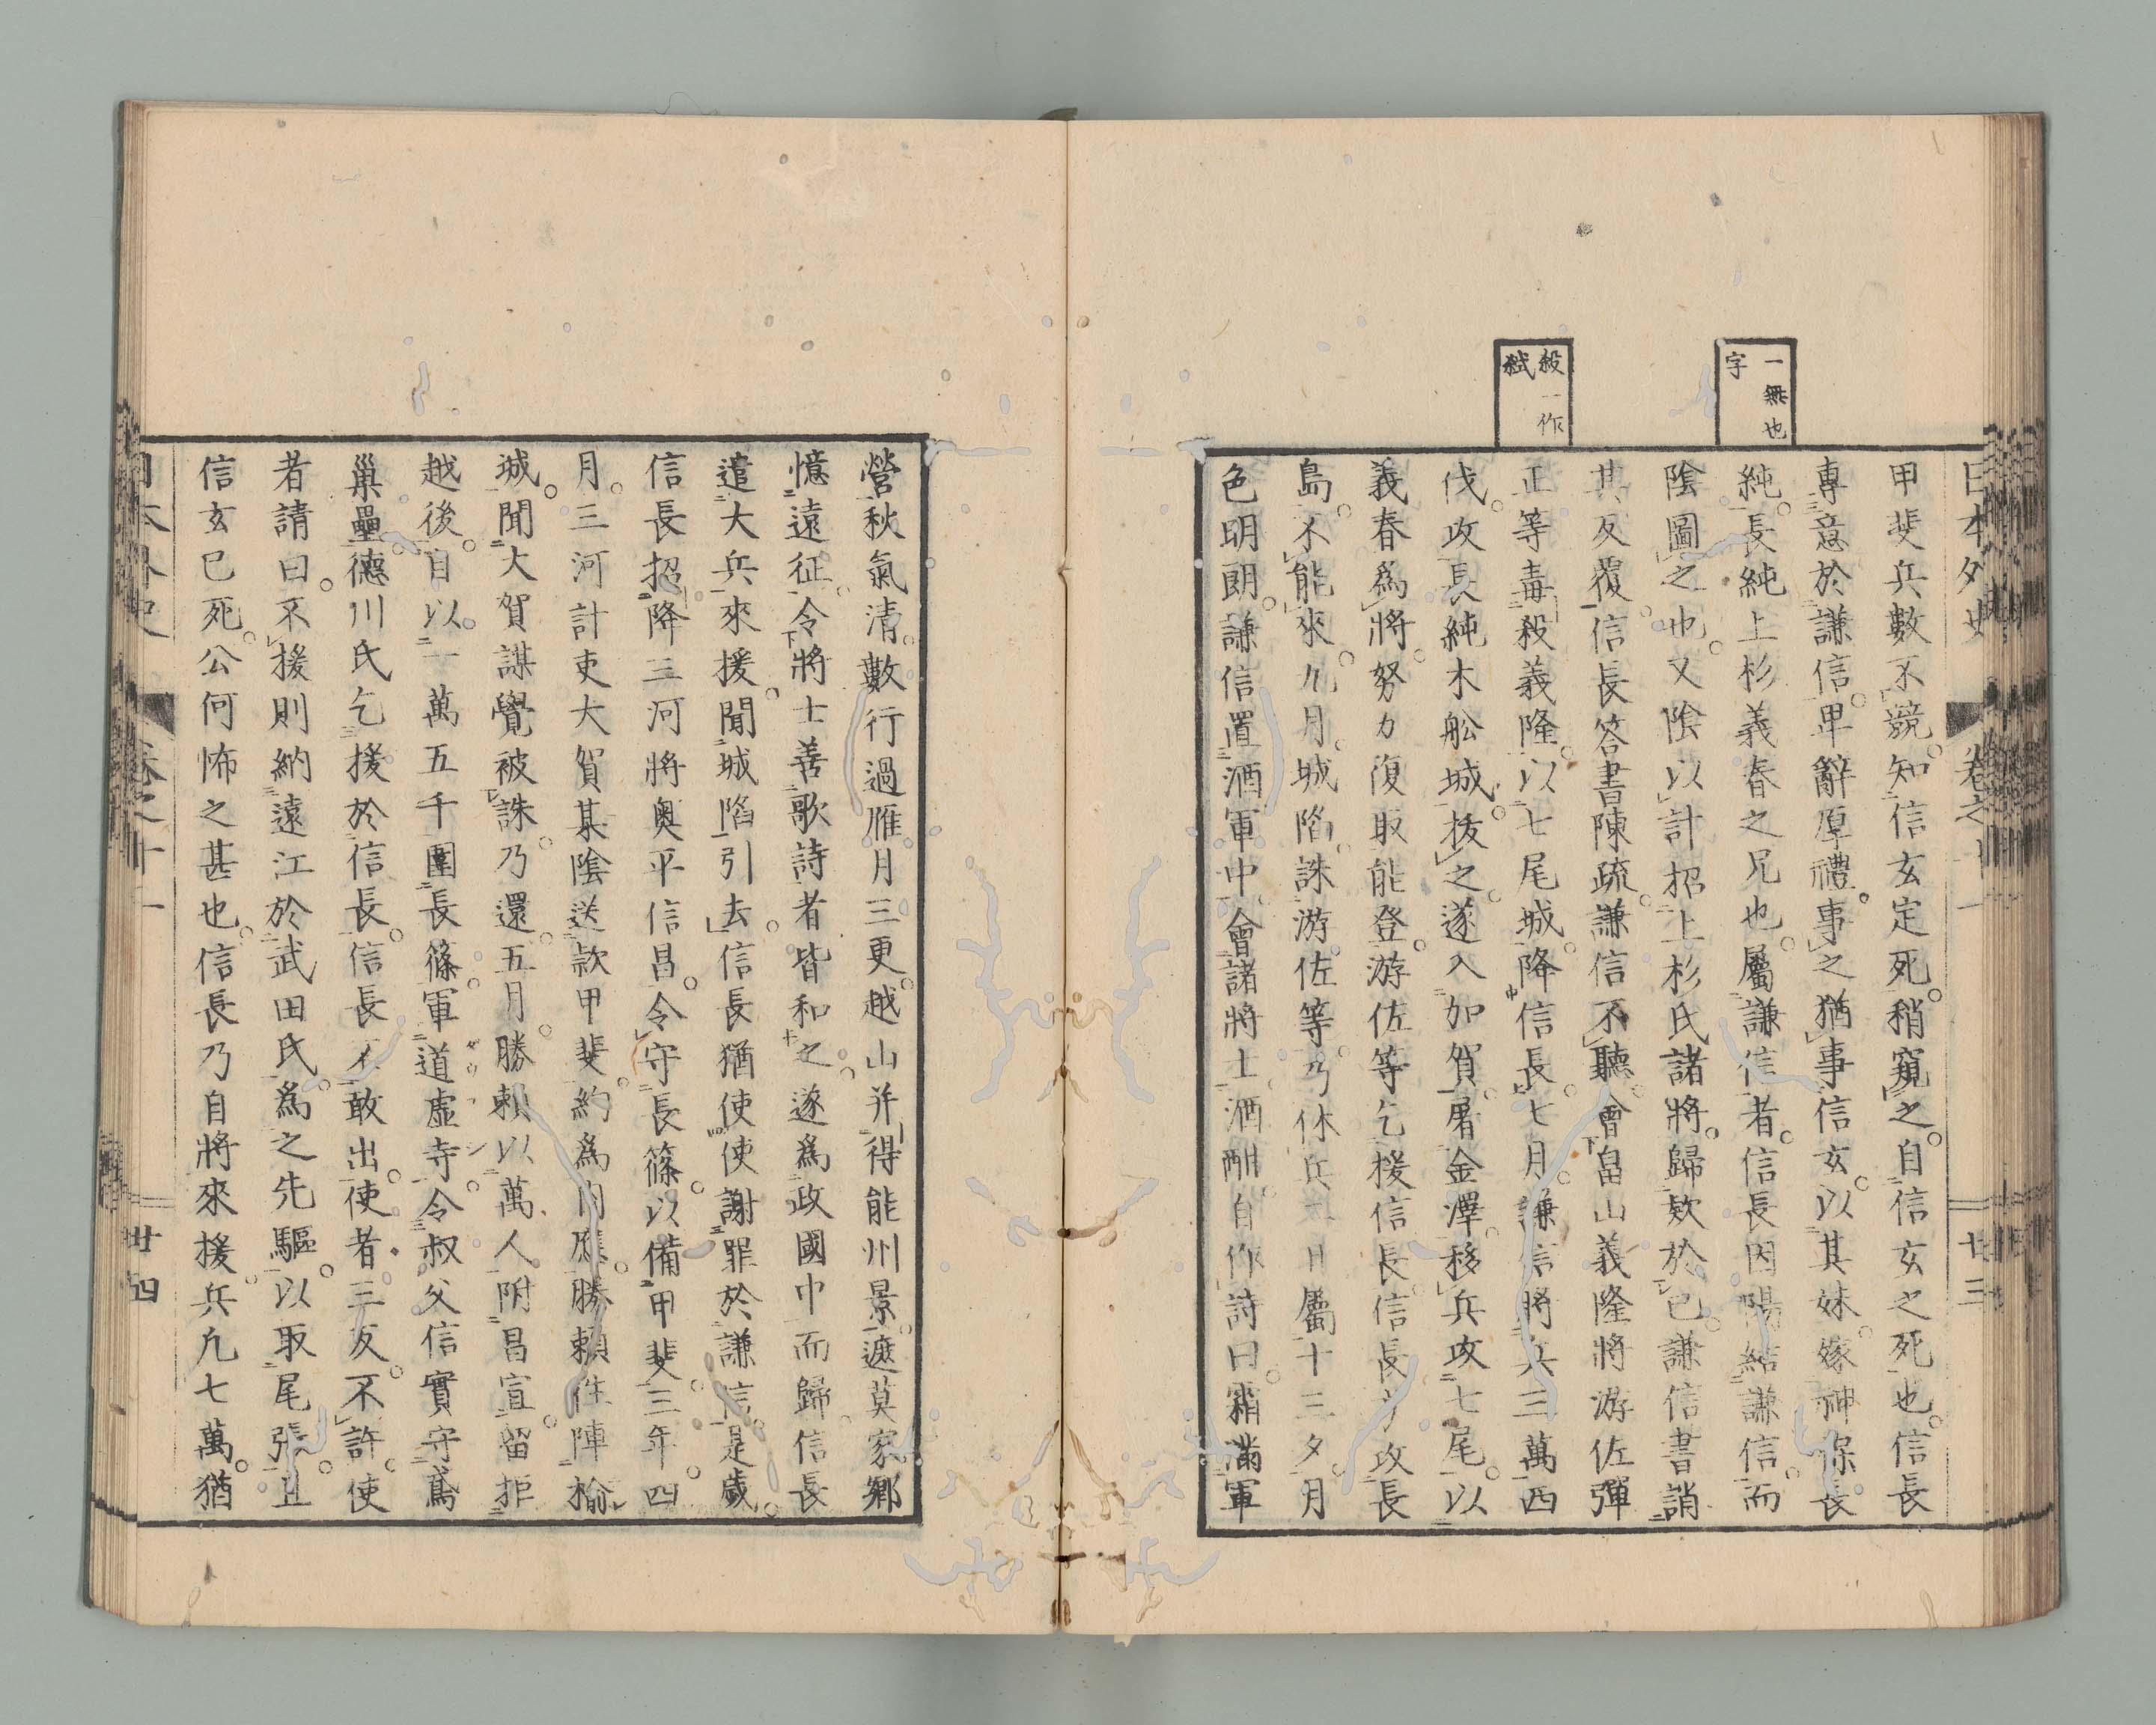 日本外史
卷之十一
廿三
一無也
字
殺一作
弑
甲斐兵數不競知信玄定死稍窺之自信玄之死也信長
專意於謙信卑辭厚禮事之猶事信玄以其妹嫁神保長
純長純上杉義春之兄也屬謙信者信長因陽結謙信而
陰圖之也又陰以計招上杉氏諸將歸欵於己謙信書誚
其反覆信長答書陳疏謙信不聽會畠山義隆將游佐彈
正等毒殺義隆以七尾城降信長七月謙信將兵三萬西
伐攻長純木舩城拔之遂入加賀屠金澤移兵攻七尾以
義春爲將努力復取能登游佐等乞援信長信長方攻長
島不能來九月城陷誅游佐等乃休兵 日屬十三夕月
色明朗謙信置酒軍中會諸將士酒酣自作詩曰霜滿軍
營秋氣清數行過雁月三更越山并得能州景遮莫家鄉
憶遠征令將士善歌詩者皆和之遂爲政國中而歸信長
遣大兵來援聞城陷引去信長猶使使謝罪於謙信是歲
信長招降三河將奥平信昌令守長篠以備甲斐三年四
月三河計吏大賀某陰送款甲斐約爲內應勝賴往陣楡
城聞大賀謀覺被誅乃還五月勝賴以萬人附昌宣留拒
越後自以一萬五千圍長篠軍道虛寺令叔父信實守鳶
巢壘德川氏乞援於信長信長不敢出使者三反不許使
者請曰不援則納遠江於武田氏爲之先驅以取尾張且
信玄已死公何怖之甚也信長乃自將來援兵凡七萬猶
日本外史
卷之十一
廿四